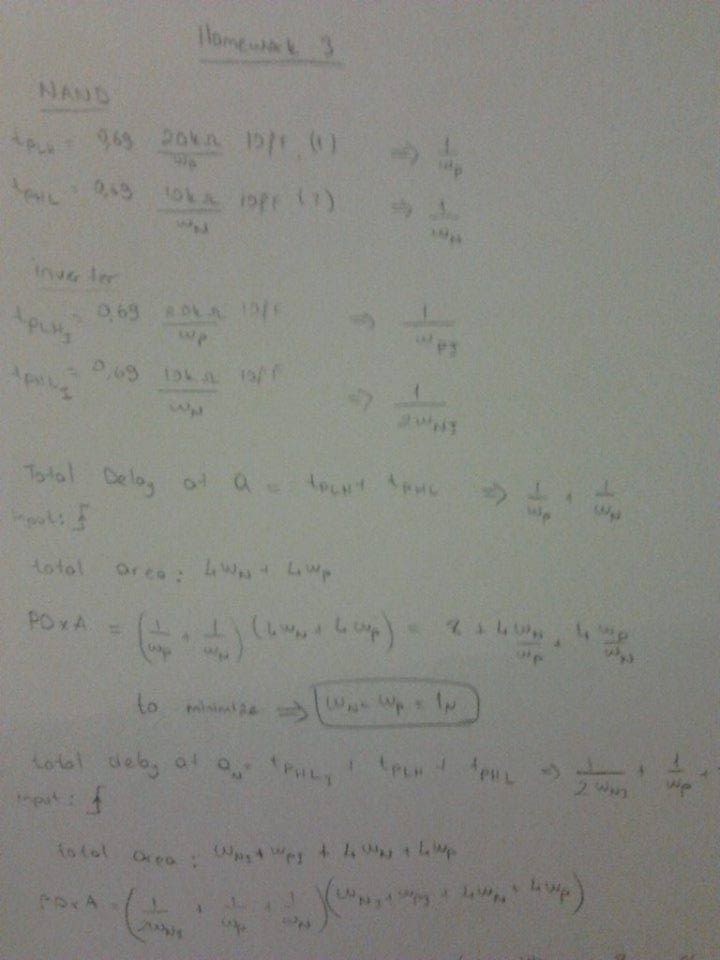 Homework 3
NAND
tPLH = 0,69 20kΩ/wP 10fF (1) ⇒ 1/wP
tPHL = 0,69 10kΩ/wN 10fF (1) ⇒ 1/wN
inverter
tPLHI = 0,69 20kΩ/wP 10fF ⇒ 1/wPI
tPHLI = 0,69 10kΩ/wN 10fF ⇒ 1/2wNI
Total Delay at Q = tPLH + tPHL ⇒ 1/wP + 1/wN
input:
total area: 4wN + 4wP
PDxA = (1/wP + 1/wN) (4wN + 4wP) = 8 + 4wN/wP + 4wP/wN
to minimize ⇒ wN = wP =
total delay at QN = tPHLI + tPLH + tPHL ⇒ 1/2wNI + 1/wP +
input:
total area: wNI + wPI + 4wN + 4wP
PDxA = (1/2wNI + 1/wP + 1/wN) (wNI + wPI + 4wN + 4wP)